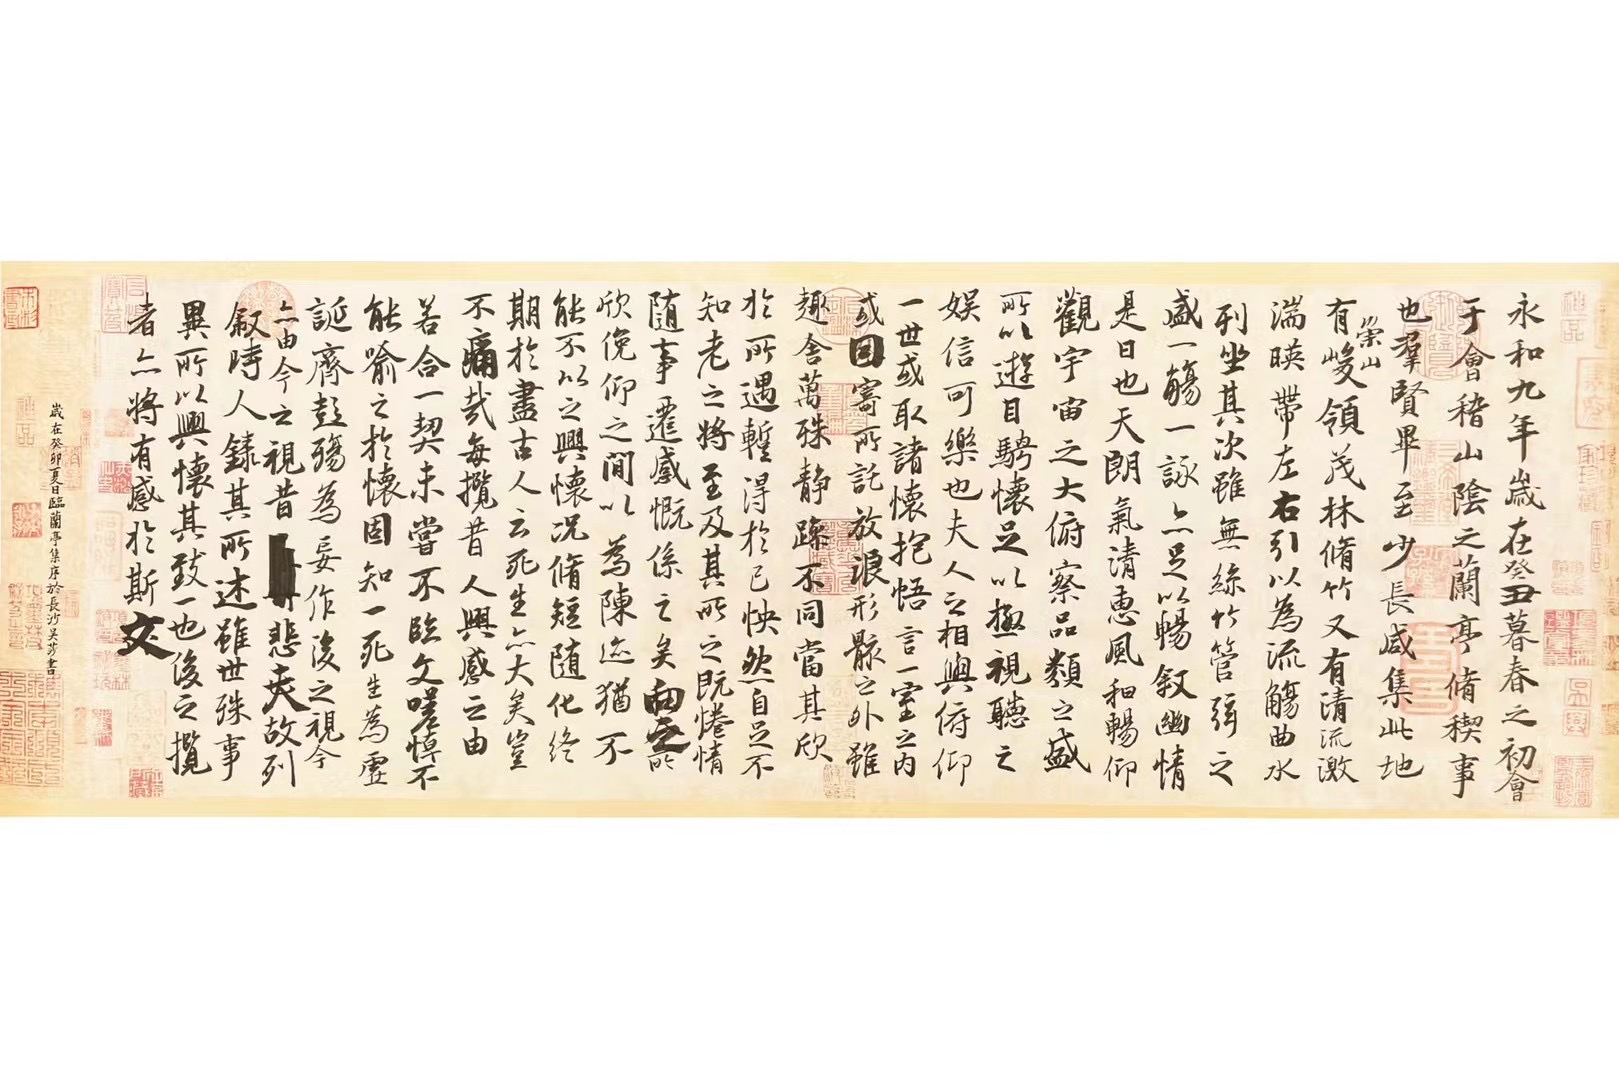 永和九年歲在癸丑暮春之初會
于會稽山陰之蘭亭脩稧事
也羣賢畢至少長咸集此地
有崇山峻領茂林脩竹又有清流激
湍暎帶左右引以為流觴曲水
列坐其次雖無絲竹管弦之
盛一觴一詠亦足以暢敘幽情
是日也天朗氣清惠風和暢仰
觀宇宙之大俯察品類之盛
所以遊目騁懷足以極視聽之
娛信可樂也夫人之相與俯仰
一世或取諸懷抱悟言一室之內
或因寄所託放浪形骸之外雖
趣舍萬殊静躁不同當其欣
於所遇蹔得於己怏然自足不
知老之將至及其所之既惓情
隨事遷感慨係之矣向之所
欣俛仰之閒以為陳迹猶不
能不以之興懷況脩短隨化終
期於盡古人云死生亦大矣豈
不痛哉每攬昔人興感之由
若合一契未嘗不臨文嗟悼不
能喻之於懷固知一死生為虛
誕齊彭殤為妄作後之視今
亦由今之視昔悲夫故列
敘時人錄其所述雖世殊事
異所以興懷其致一也後之攬
者亦將有感於斯文
歲在癸卯夏日臨蘭亭集序於長沙吳莎書